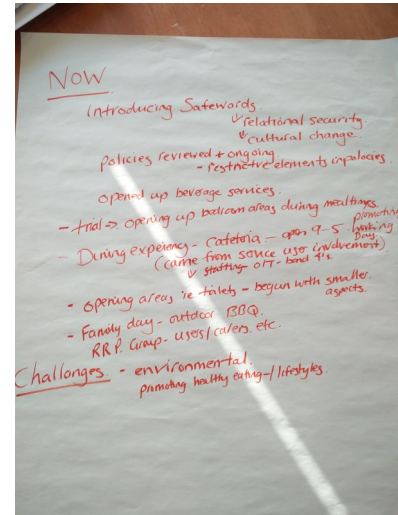 NOW
Introducing Safewords
↓ relational security
↓ cultural change.
Policies reviewed + ongoing
- restrictive elements in policies.
opened up beverage services.
- trial → opening up bedroom areas during mealtimes.
- Dining experiency - Cafetoria - open 9-5. promoting working Day.
(came from service user involvement)
↓ staffing - OT - band 4's.
- opening areas ie toilets - begun with smaller aspects.
- Family day - outdoor BBQ.
RRP. Group - users/carers etc.
Challenges - environmental.
promoting healthy eating -/ lifestyles.